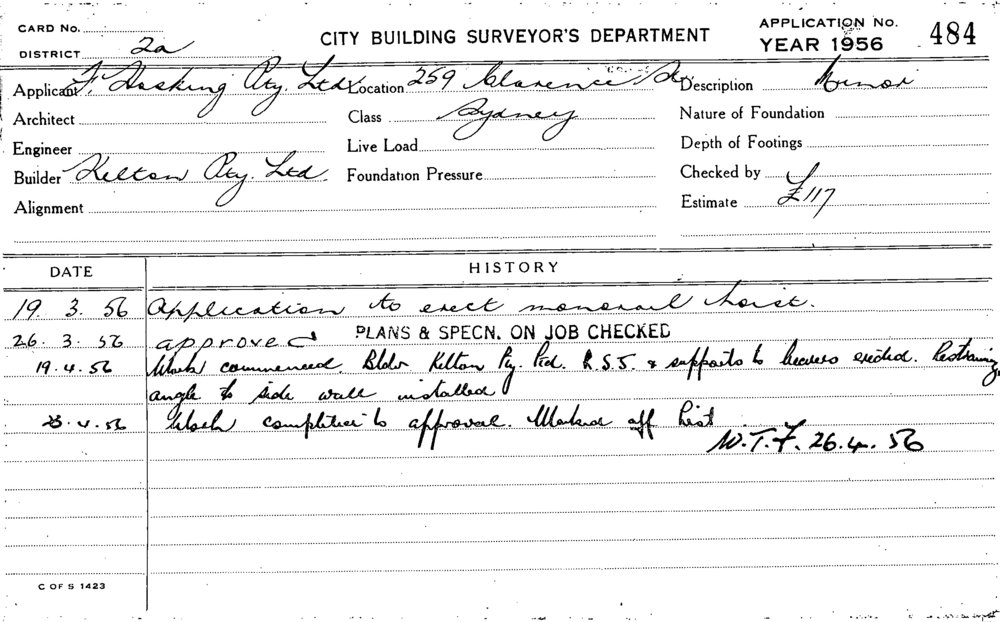 CARD No.
CITY BUILDING SURVEYOR'S DEPARTMENT
APPLICATION No. 484
DISTRICT 2a
YEAR 1956
Applicant F. Hosking Pty. Ltd. Location 259 Clarence St. Description Minor
Architect Class Sydney Nature of Foundation
Engineer Live Load Depth of Footings
Builder Kelton Pty. Ltd. Foundation Pressure Checked by
Alignment Estimate £117
DATE HISTORY
19. 3. 56 Application to erect monorail hoist.
26. 3. 56 approved PLANS & SPECN. ON JOB CHECKED
19. 4. 56 Work commenced Bldr Kelton Pty. Ltd. R.S.J. & supports to erected. Restraining
angle to side wall installed
4. 56 Work completed to approval. Marked off list
W.T.F. 26. 4. 56
C OF S 1423